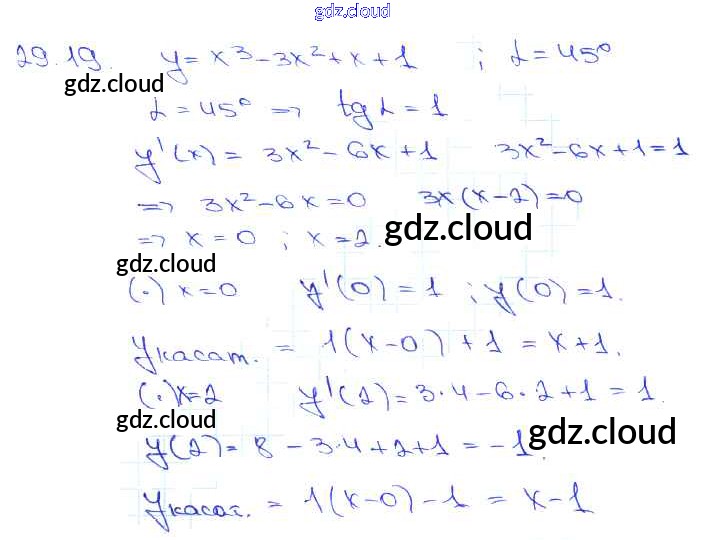 gdz.cloud
29.19. y = x³ - 3x² + x + 1 ; α = 45°
gdz.cloud
α = 45° => tg α = 1
y'(x) = 3x² - 6x + 1 3x² - 6x + 1 = 1
=> 3x² - 6x = 0 3x(x-2) = 0
=> x = 0 ; x = 2.
gdz.cloud
gdz.cloud
(·) x = 0 y'(0) = 1 ; y(0) = 1.
yкасат. = 1(x-0) + 1 = x + 1.
(·) x = 2 y'(2) = 3·4 - 6·2 + 1 = 1.
gdz.cloud
gdz.cloud
y(2) = 8 - 3·4 + 2 + 1 = -1.
yкасат. = 1(x-0) - 1 = x - 1